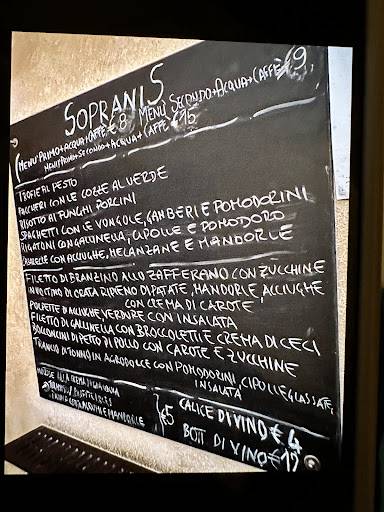 SOPRANIS
MENU PRIMO+ACQUA+CAFFÈ € 8 MENÙ SECONDO+ACQUA+CAFFÈ € 9
MENU PRIMO+SECONDO+ACQUA+CAFFÈ €15
TROFIE AL PESTO
PACCHERI CON LE COZZE AL VERDE
RISOTTO AI FUNGHI PORCINI
SPAGHETTI CON LE VONGOLE, GAMBERI E POMODORINI
RIGATONI CON GALLINELLA, CIPOLLE E POMODORO
CON ACCIUGHE, MELANZANE E MANDORLE
FILETTO DI BRANZINO ALLO ZAFFERANO CON ZUCCHINE
INVOLTINO DI ORATA RIPIENO DI PATATE, MANDORLE, ACCIUGHE
CON CREMA DI CAROTE,
POLPETTE DI ACCIUGHE, VERDURE CON INSALATA
FILETTO DI GALLINELLA CON BROCCOLETTI E CREMA DI CECI
BOCCONCINI DI PETTO DI POLLO CON CAROTE E ZUCCHINE
TRANCIO DI TONNO IN AGRODOLCE CON POMODORINI, CIPOLLE GLASSATE,
INSALATA
ALLA CREMA DI
E MANDORLE
€5
CALICE DI VINO € 4
BOTT. DI VINO €